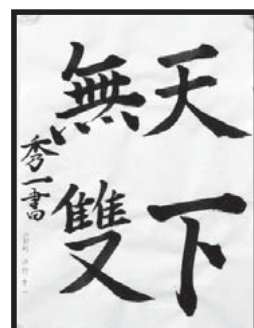 天下
無雙
秀一書